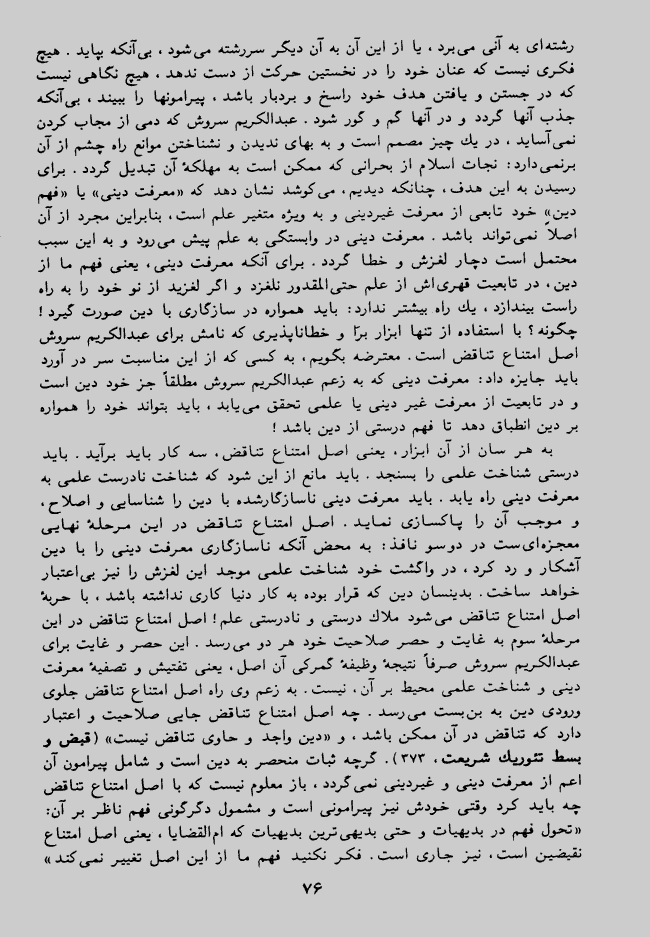 رشته‌ای به آنی می‌برد ، یا از این آن به آن دیگر سررشته می‌شود ، بی‌آنکه بپاید . هیچ
فکری نیست که عنان خود را در نخستین حرکت از دست ندهد ، هیچ نگاهی نیست
که در جستن و یافتن هدف خود راسخ و بردبار باشد ، پیرامونها را ببیند ، بی‌آنکه
جذب آنها گردد و در آنها گم و گور شود . عبدالکریم سروش که دمی از مجاب کردن
نمی‌آساید ، در یك چیز مصمم است و به بهای ندیدن و نشناختن موانع راه چشم از آن
برنمی‌دارد: نجات اسلام از بحرانی که ممکن است به مهلکهٔ آن تبدیل گردد . برای
رسیدن به این هدف، چنانکه دیدیم، می‌کوشد نشان دهد که «معرفت دینی» یا «فهم
دین» خود تابعی از معرفت غیردینی و به ویژه متغیر علم است، بنابراین مجرد از آن
اصلاً نمی‌تواند باشد . معرفت دینی در وابستگی به علم پیش می‌رود و به این سبب
محتمل است دچار لغزش و خطا گردد . برای آنکه معرفت دینی، یعنی فهم ما از
دین، در تابعیت قهری‌اش از علم حتی‌المقدور نلغزد و اگر لغزید از نو خود را به راه
راست بیندازد، یك راه بیشتر ندارد: باید همواره در سازگاری با دین صورت گیرد!
چگونه؟ با استفاده از تنها ابزار برّا و خطاناپذیری که نامش برای عبدالکریم سروش
اصل امتناع تناقض است . معترضه بگویم، به کسی که از این مناسبت سر در آورد
باید جایزه داد: معرفت دینی که به زعم عبدالکریم سروش مطلقاً جز خود دین است
و در تابعیت از معرفت غیر دینی یا علمی تحقق می‌یابد ، باید بتواند خود را همواره
بر دین انطباق دهد تا فهم درستی از دین باشد !
به هر سان از آن ابزار، یعنی اصل امتناع تناقض، سه کار باید برآید . باید
درستی شناخت علمی را بسنجد . باید مانع از این شود که شناخت نادرست علمی به
معرفت دینی راه یابد . باید معرفت دینی ناسازگارشده با دین را شناسایی و اصلاح،
و موجب آن را پاکسازی نماید . اصل امتناع تناقض در این مرحلهٔ نهایی
معجزه‌ای‌ست در دوسو نافذ: به محض آنکه ناسازگاری معرفت دینی را با دین
آشکار و رد کرد، در واگشت خود شناخت علمی موجد این لغزش را نیز بی‌اعتبار
خواهد ساخت. بدینسان دین که قرار بوده به کار دنیا کاری نداشته باشد ، با حربهٔ
اصل امتناع تناقض می‌شود ملاك درستی و نادرستی علم! اصل امتناع تناقض در این
مرحلهٔ سوم به غایت و حصر صلاحیت خود هر دو می‌رسد . این حصر و غایت برای
عبدالکریم سروش صرفاً نتیجهٔ وظیفهٔ گمرکی آن اصل، یعنی تفتیش و تصفیهٔ معرفت
دینی و شناخت علمی محیط بر آن، نیست. به زعم وی راه اصل امتناع تناقض جلوی
ورودی دین به بن‌بست می‌رسد . چه اصل امتناع تناقض جایی صلاحیت و اعتبار
دارد که تناقض در آن ممکن باشد ، و «دین واجد و حاوی تناقض نیست» (قبض و
بسط تئوریك شریعت، ۳۷۳). گرچه ثبات منحصر به دین است و شامل پیرامون آن
اعم از معرفت دینی و غیردینی نمی‌گردد ، باز معلوم نیست که با اصل امتناع تناقض
چه باید کرد وقتی خودش نیز پیرامونی است و مشمول دگرگونی فهم ناظر بر آن:
«تحول فهم در بدیهیات و حتی بدیهی‌ترین بدیهیات که ام‌القضایا، یعنی اصل امتناع
نقیضین است، نیز جاری است. فکر نکنید فهم ما از این اصل تغییر نمی‌کند»
۷۶